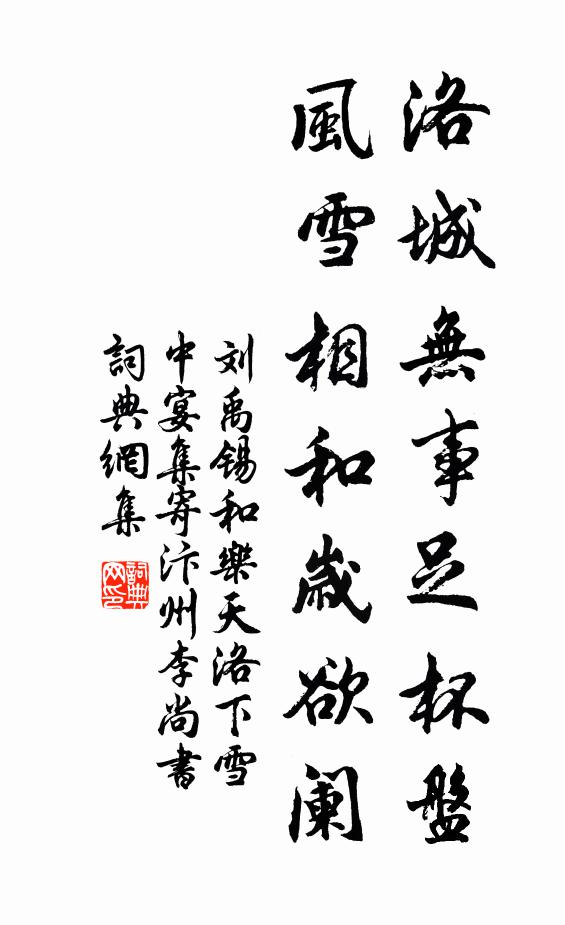 洛城無事足杯盤
風雪相和歲欲闌
刘禹锡和樂天洛下雪
中宴集寄汴州李尚書
詞典網集
詞典网印